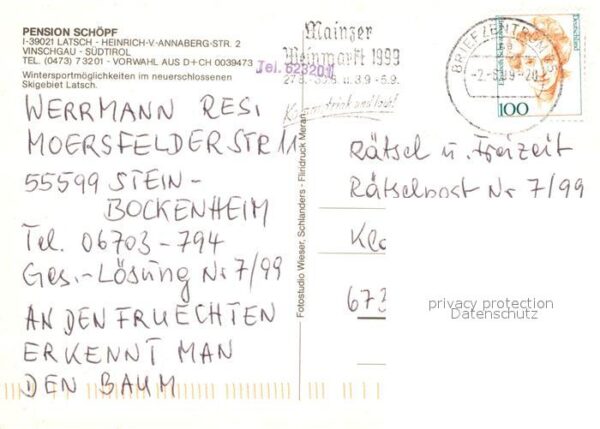 PENSION SCHÖPF
I-39021 LATSCH - HEINRICH-V.-ANNABERG-STR. 2
VINSCHGAU - SÜDTIROL
TEL. (0473) 73201 - VORWAHL AUS D+CH 0039473
Tel. 623201
Wintersportmöglichkeiten im neuerschlossenen
Skigebiet Latsch.
Mainzer
Weinmarkt 1999
u. 3.9.-5.9.
BRIEFZENTRUM
Deutschland
100
WERRMANN RESI
MOERSFELDERSTR 11
55599 STEIN-
BOCKENHEIM
Tel. 06703-794
Ges.-Lösung Nr 7/99
AN DEN FRUECHTEN
ERKENNT MAN
DEN BAUM
Fotostudio Wieser, Schlanders - Fliridruck Meran
Rätsel u. Freizeit
Rätselpost Nr 7/99
673
privacy protection
Datenschutz